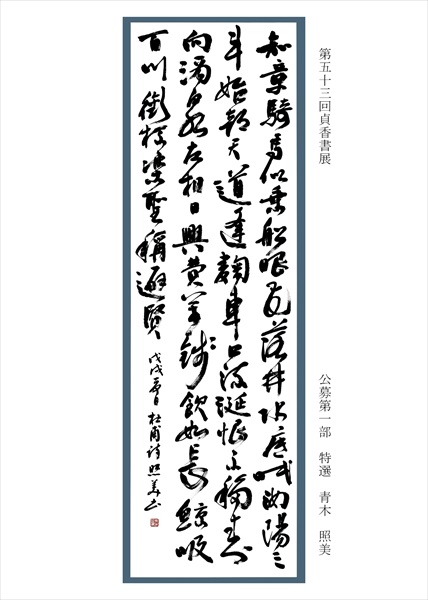 第五十三回貞香書展
公募第一部　特選　青木　照美
知章騎馬似乗船眼花落井水底眠汝陽三
斗始朝天道逢麹車口流涎恨不移封
向酒泉左相日興費萬銭飲如長鯨吸
百川銜杯楽聖稱避賢
戊戌春日杜甫詩照美書